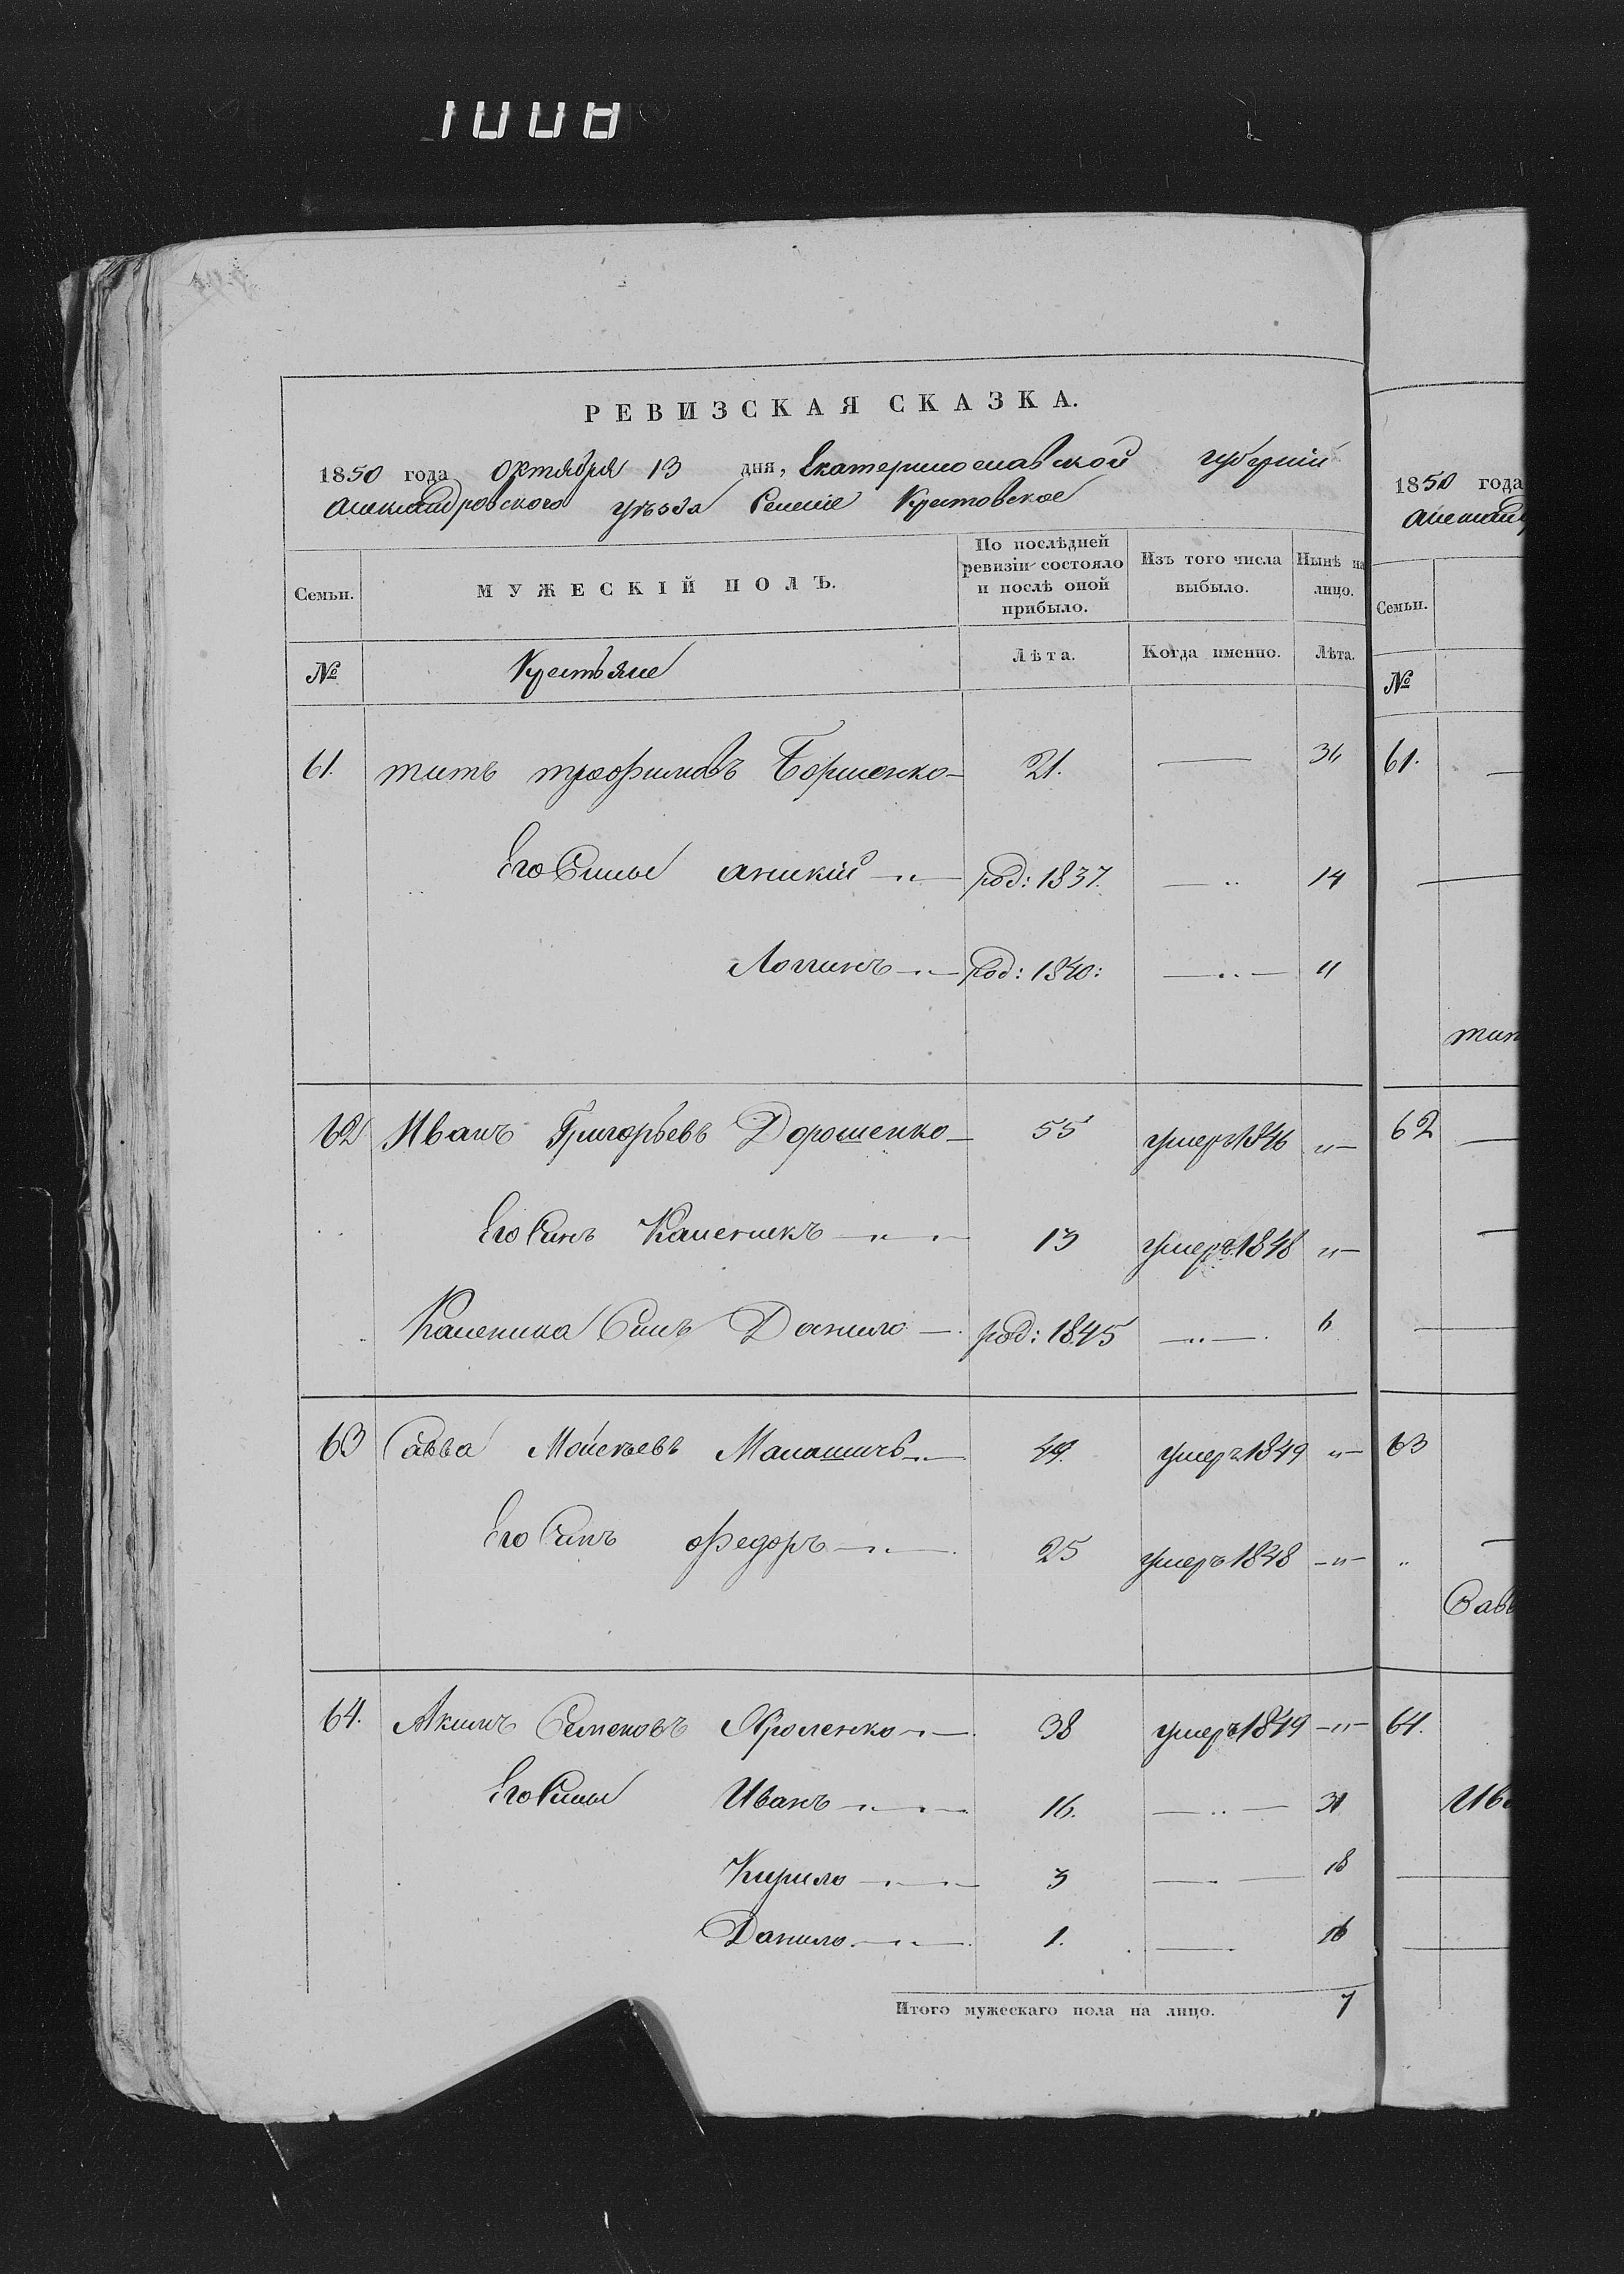 1008
РЕВИЗСКАЯ СКАЗКА.
1850 года Октября 13 дня, Екатеринославской губерніи
Александровскаго уѣзда Селеніе Крестовское
Семьи.
МУЖЕСКІЙ ПОЛЪ.
По послѣдней ревизіи состояло и послѣ оной прибыло.
Изъ того числа выбыло.
Нынѣ на лицо.
№ Крестьяне Лѣта. Когда именно. Лѣта.
61. титъ трофимовъ Борисенко 21. — 36
Его Сыны аникій род: 1837. — 14
Логинъ род: 1840: — 11
62 Иванъ Григорьевъ Дорошенко 55 умеръ 1846 "
Его Сынъ Каленикъ 13 умеръ 1848 "
Каленика Сынъ Данило род: 1845 — 6
63 Савва Мойсѣевъ 49. умеръ 1849 "
Его Сынъ Федоръ 25 умеръ 1848 "
64. Акимъ Семеновъ 38 умеръ 1849 "
Его Сыны Иванъ 16. — 31
Кирило 3 — 18
Данило 1. — 16
Итого мужескаго пола на лицо. 7
1850 года
Семьи.
№
61.
62
63
64.